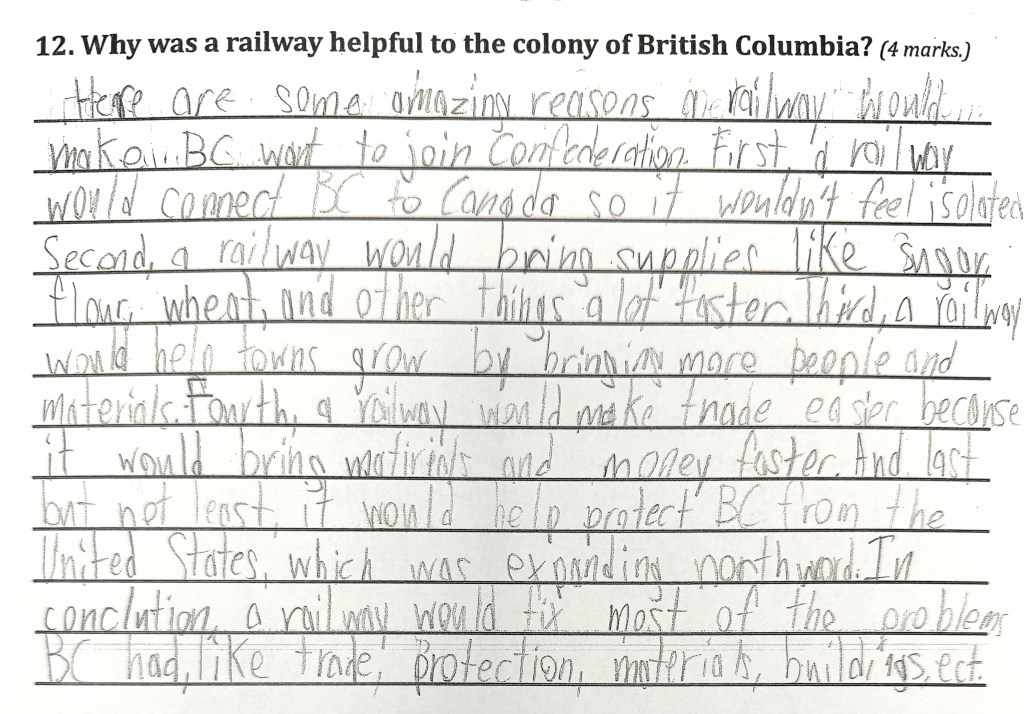 12. Why was a railway helpful to the colony of British Columbia? (4 marks.)
Here are some amazing reasons a railway would
make BC want to join Confederation. First, a railway
would connect BC to Canada so it wouldn't feel isolated
Second, a railway would bring supplies like sugar,
flour, wheat, and other things a lot faster. Third, a railway
would help towns grow by bringing more people and
materials. Fourth, a railway would make trade easier because
it would bring matirials and money faster. And last
but not least, it would help protect BC from the
United States, which was expanding northward. In
conclution, a railway would fix most of the problems
BC had, like trade, protection, materials, buildings, ect.